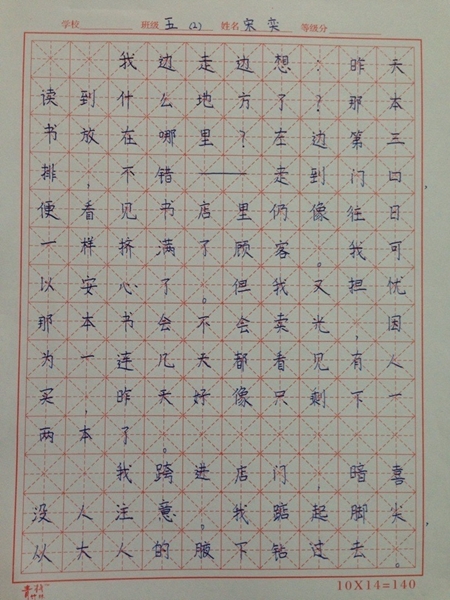 学校 班级 五 (2) 姓名 宋奕 等级分
我边走边想：昨天
读到什么地方了？那本
书放在哪里？左边第三
排，不错——走到门口，
便看见书店里仍像往日
一样挤满了顾客。我可
以安心了。但我又担忧
那本书会不会卖光，因
为一连几天都看见有人
买，昨天好像只剩下一
两本了。
我跨进店门，暗喜
没人注意。我踮起脚尖，
从大人的腋下钻过去。
10X14=140